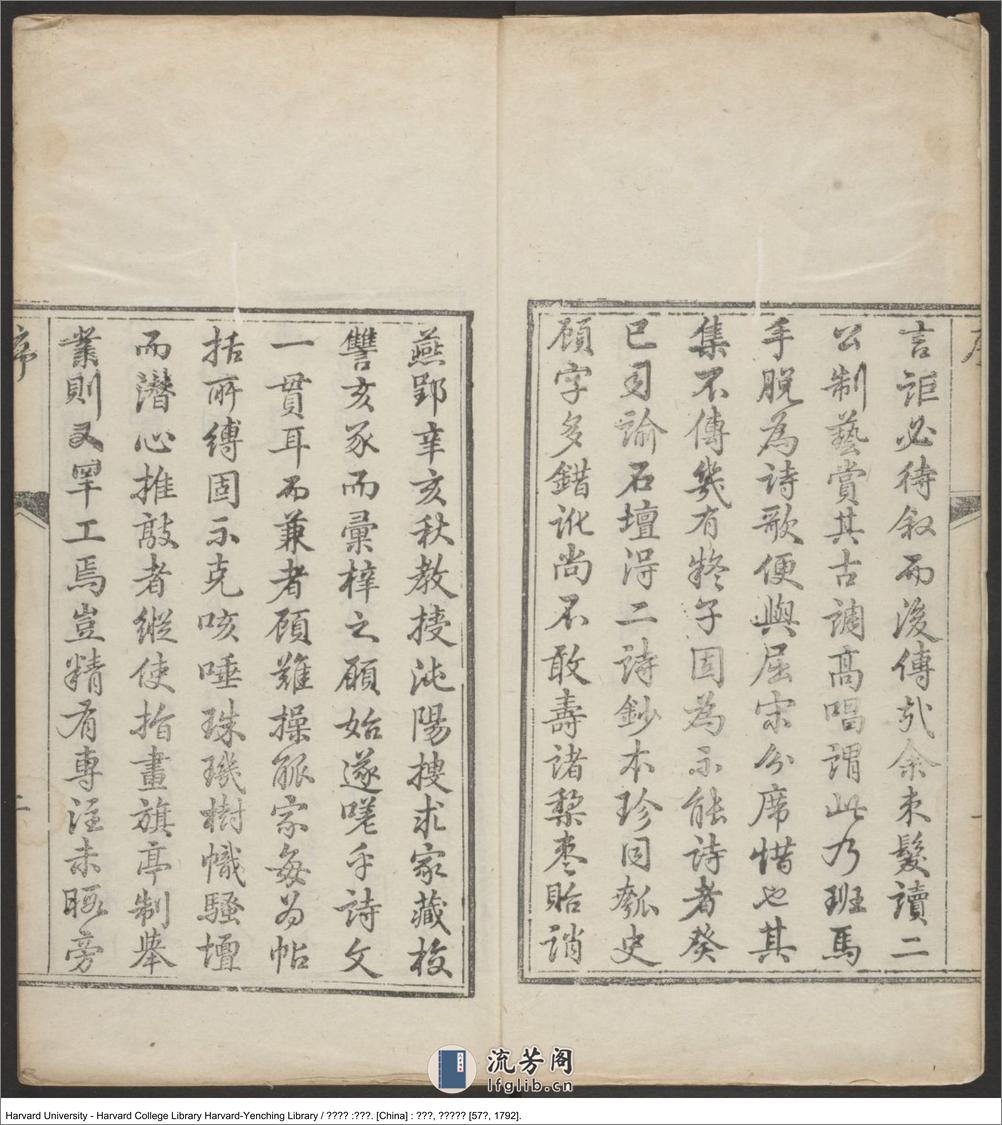 言詎必待叙而後傳哉余束髮讀二
公制藝賞其古調高唱謂此乃班馬
手脫為詩歌便與屈宋分席惜也其
集不傳幾有疑子固為不能詩者癸
巳司諭石壇得二詩鈔本珍同瓠史
顧字多錯訛尚不敢壽諸梨棗貽誚
燕郢辛亥秋教授沌陽搜求家藏校
讐亥豕而彙梓之願始遂嗟乎詩文
一貫耳而兼者顧難操觚家每為帖
括所縛固不克咳唾珠璣樹幟騷壇
而潛心推敲者縱使指畫旗亭制舉
業則又罕工焉豈精有專注未暇旁
序
二
流芳阁
lfglib.cn
Harvard University - Harvard College Library Harvard-Yenching Library / ???? :???. [China] : ???, ????? [57?, 1792].